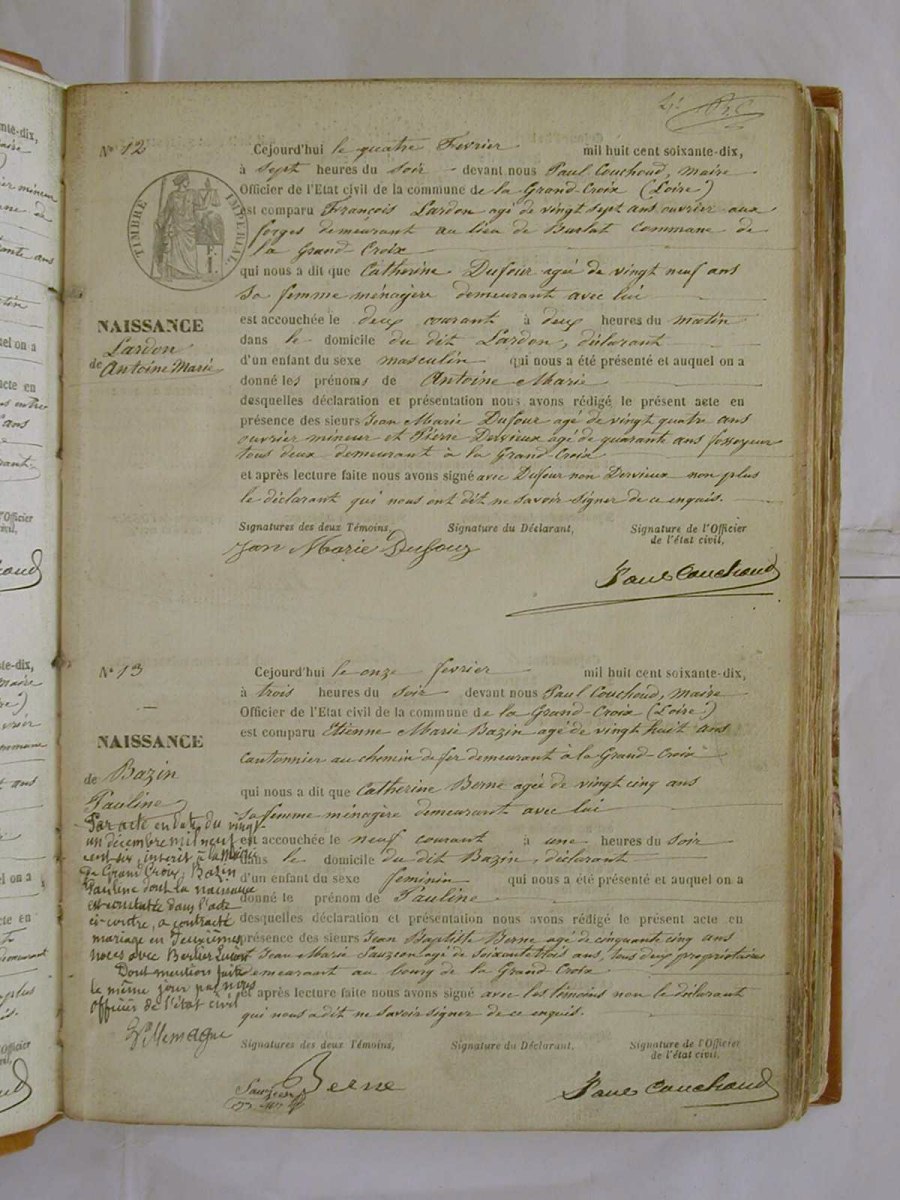 Nº 12
Cejourd'hui le quatre Fevrier mil huit cent soixante-dix,
à sept heures du soir devant nous Paul Couchoud, maire
Officier de l'Etat civil de la commune de la Grand-Croix (Loire)
est comparu François Lardon agé de vingt sept ans ouvrier aux
forges demeurant au lieu de Burlat commune de
la Grand-Croix
qui nous a dit que Catherine Dufour agée de vingt neuf ans
sa femme ménagère demeurant avec lui
est accouchée le deux courant à deux heures du matin
dans le domicile du dit Lardon, déclarant
d'un enfant du sexe masculin qui nous a été présenté et auquel on a
donné les prénoms de Antoine Marie
desquelles déclaration et présentation nous avons rédigé le présent acte en
présence des sieurs Jean Marie Dufour agé de vingt quatre ans
ouvrier mineur et Pierre Dervieux agé de quarante ans fossoyeur
tous deux demeurant à la Grand-Croix
et après lecture faite nous avons signé avec Dufour non Dervieux non plus
le déclarant qui nous ont dit ne savoir signer de ce enquis.
TIMBRE IMPERIAL
NAISSANCE
Lardon
de Antoine Marie
Signatures des deux Témoins, Signature du Déclarant, Signature de l'Officier
de l'état civil,
Jan Marie Dufour
Paul Couchoud
Nº 13
Cejourd'hui le onze fevrier mil huit cent soixante-dix,
à trois heures du soir devant nous Paul Couchoud, maire
Officier de l'Etat civil de la commune de la Grand-Croix (Loire)
est comparu Etienne Marie Bazin agé de vingt huit ans
cantonnier au chemin de fer demeurant à la Grand-Croix
qui nous a dit que Catherine Berne agée de vingt cinq ans
sa femme ménagère demeurant avec lui
est accouchée le neuf courant à une heures du soir
dans le domicile du dit Bazin, déclarant
d'un enfant du sexe feminin qui nous a été présenté et auquel on a
donné le prénom de Pauline
desquelles déclaration et présentation nous avons rédigé le présent acte en
présence des sieurs Jean Baptiste Berne agé de cinquante cinq ans
Jean Marie agé de soixante trois ans, tous deux propriétaires
demeurant au bourg de la Grand-Croix
et après lecture faite nous avons signé avec les témoins non le déclarant
qui nous a dit ne savoir signer de ce enquis.
NAISSANCE
de Bazin
Pauline
Par acte en date du vingt
un décembre mil neuf
cent six, inscrit à la Mairie
de Grand Croix, Bazin
Pauline dont la naissance
est constatée dans l'acte
ci-contre, a contracté
mariage en deuxièmes
noces avec Berlier
Dont mention faite
le même jour par nous
officier de l'état civil
Signatures des deux Témoins, Signature du Déclarant, Signature de l'Officier
de l'état civil.
Berne
Paul Couchoud